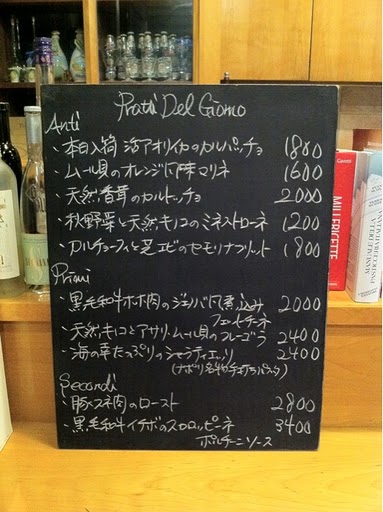 Piatti Del Giorno
Anti
・本日入荷 活アオリイカのカルパッチョ 1800
・ムール貝のオレンジ風味マリネ 1600
・天然香茸のカルトッチョ 2000
・秋野菜と天然キノコのミネストローネ 1200
・カルチョーフィと芝エビのセモリナフリット 1800
Primi
・黒毛和牛ホホ肉のジェノバ風煮込み 2000
フェットチーネ
・天然キノコとアサリ・ムール貝のフレーゴラ 2400
・海の幸たっぷりのシャラティエッリ 2400
Secondi
・豚スネ肉のロースト 2800
・黒毛和牛イチボのスカロッピーネ 3400
ポルチーニソース
MILLERICETTE
MANUALE DELLA